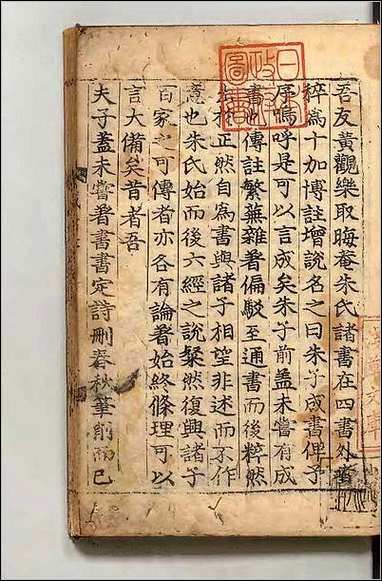 吾友黃觀樂取晦菴朱氏諸書在四書外者
稡爲十加博註增說名之曰朱子成書俾予
序嗚呼是可以言成矣朱子前盖未嘗有成
書也傳註繁蕪雜者偏駁至通書而後粹然
正然自爲書與諸子相望非述而不作
意也朱氏始而後六經之說粲然復興諸子
百家之可傳者亦各有論著始終條理可以
言大備矣昔者吾
夫子盖未嘗著書書定詩刪春秋筆削而已